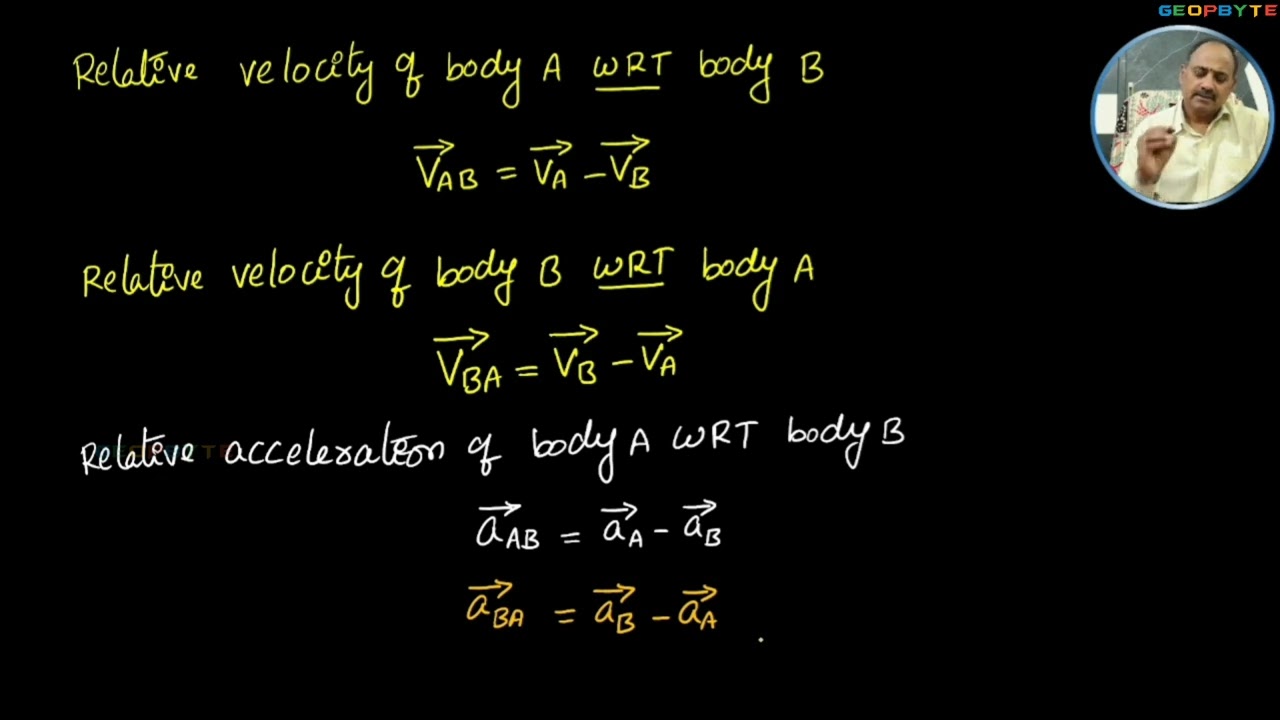 GEOPBYTE
Relative velocity of body A WRT body B
V⃗_AB = V⃗_A − V⃗_B
Relative velocity of body B WRT body A
V⃗_BA = V⃗_B − V⃗_A
Relative acceleration of body A WRT body B
a⃗_AB = a⃗_A − a⃗_B
a⃗_BA = a⃗_B − a⃗_A